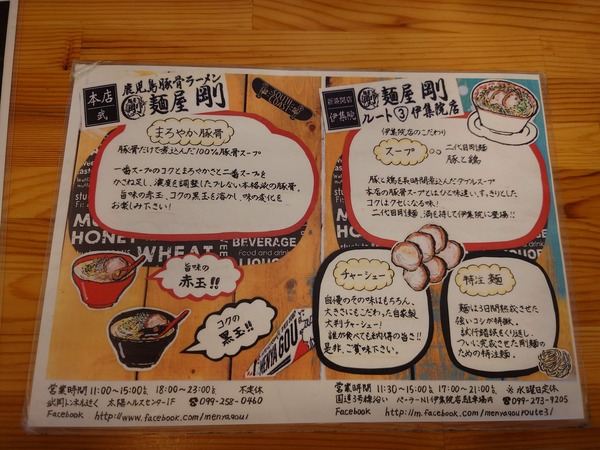 本店
武
鹿児島豚骨ラーメン
麺屋 剛
まろやか豚骨
豚骨だけで煮込んだ100%豚骨スープ
一番スープのコクとまろやかさと二番スープを
かさね足し、濃度を調整したブレない本格派の豚骨。
旨味の赤玉、コクの黒玉を溶かし、味の変化も
お楽しみ下さい!
SOUTH COAST
HONEY
WHEAT
BEVERAGE
Food and drink
LIQUOR
旨味の
赤玉!!
コクの
黒玉!!
MENYA GOU
営業時間 11:00〜15:00 18:00〜23:00 不定休
武岡トンネル近く 太陽ヘルスセンター1F ☎099-258-0460
Facebook http://www.facebook.com/menyagou/
新店
伊集院
麺屋 剛
ルート③伊集院店
伊集院店のこだわり
スープ
二代目剛麺
豚と鶏
豚と鶏を長時間煮込んだダブルスープ
本店の豚骨スープとはひと味違い、すっきりとした
コクはクセになる味!
二代目剛麺、満を持して伊集院に登場!!
チャーシュー
自慢のその味はもちろん、
大きさにもこだわった自家製
大判チャーシュー!
誰が食べても納得の旨さ!!
是非、ご賞味下さい。
特注麺
麺は3日間熟成させた
強いコシが特徴。
試行錯誤をくり返し、
ついに完成させた剛麺の
ための特注麺。
営業時間 11:30〜15:00 17:00〜21:00 ※水曜日定休
国道3号線沿い パーラーN1伊集院店駐車場内 ☎099-273-9205
Facebook http://m.facebook.com/menyagouroute3/